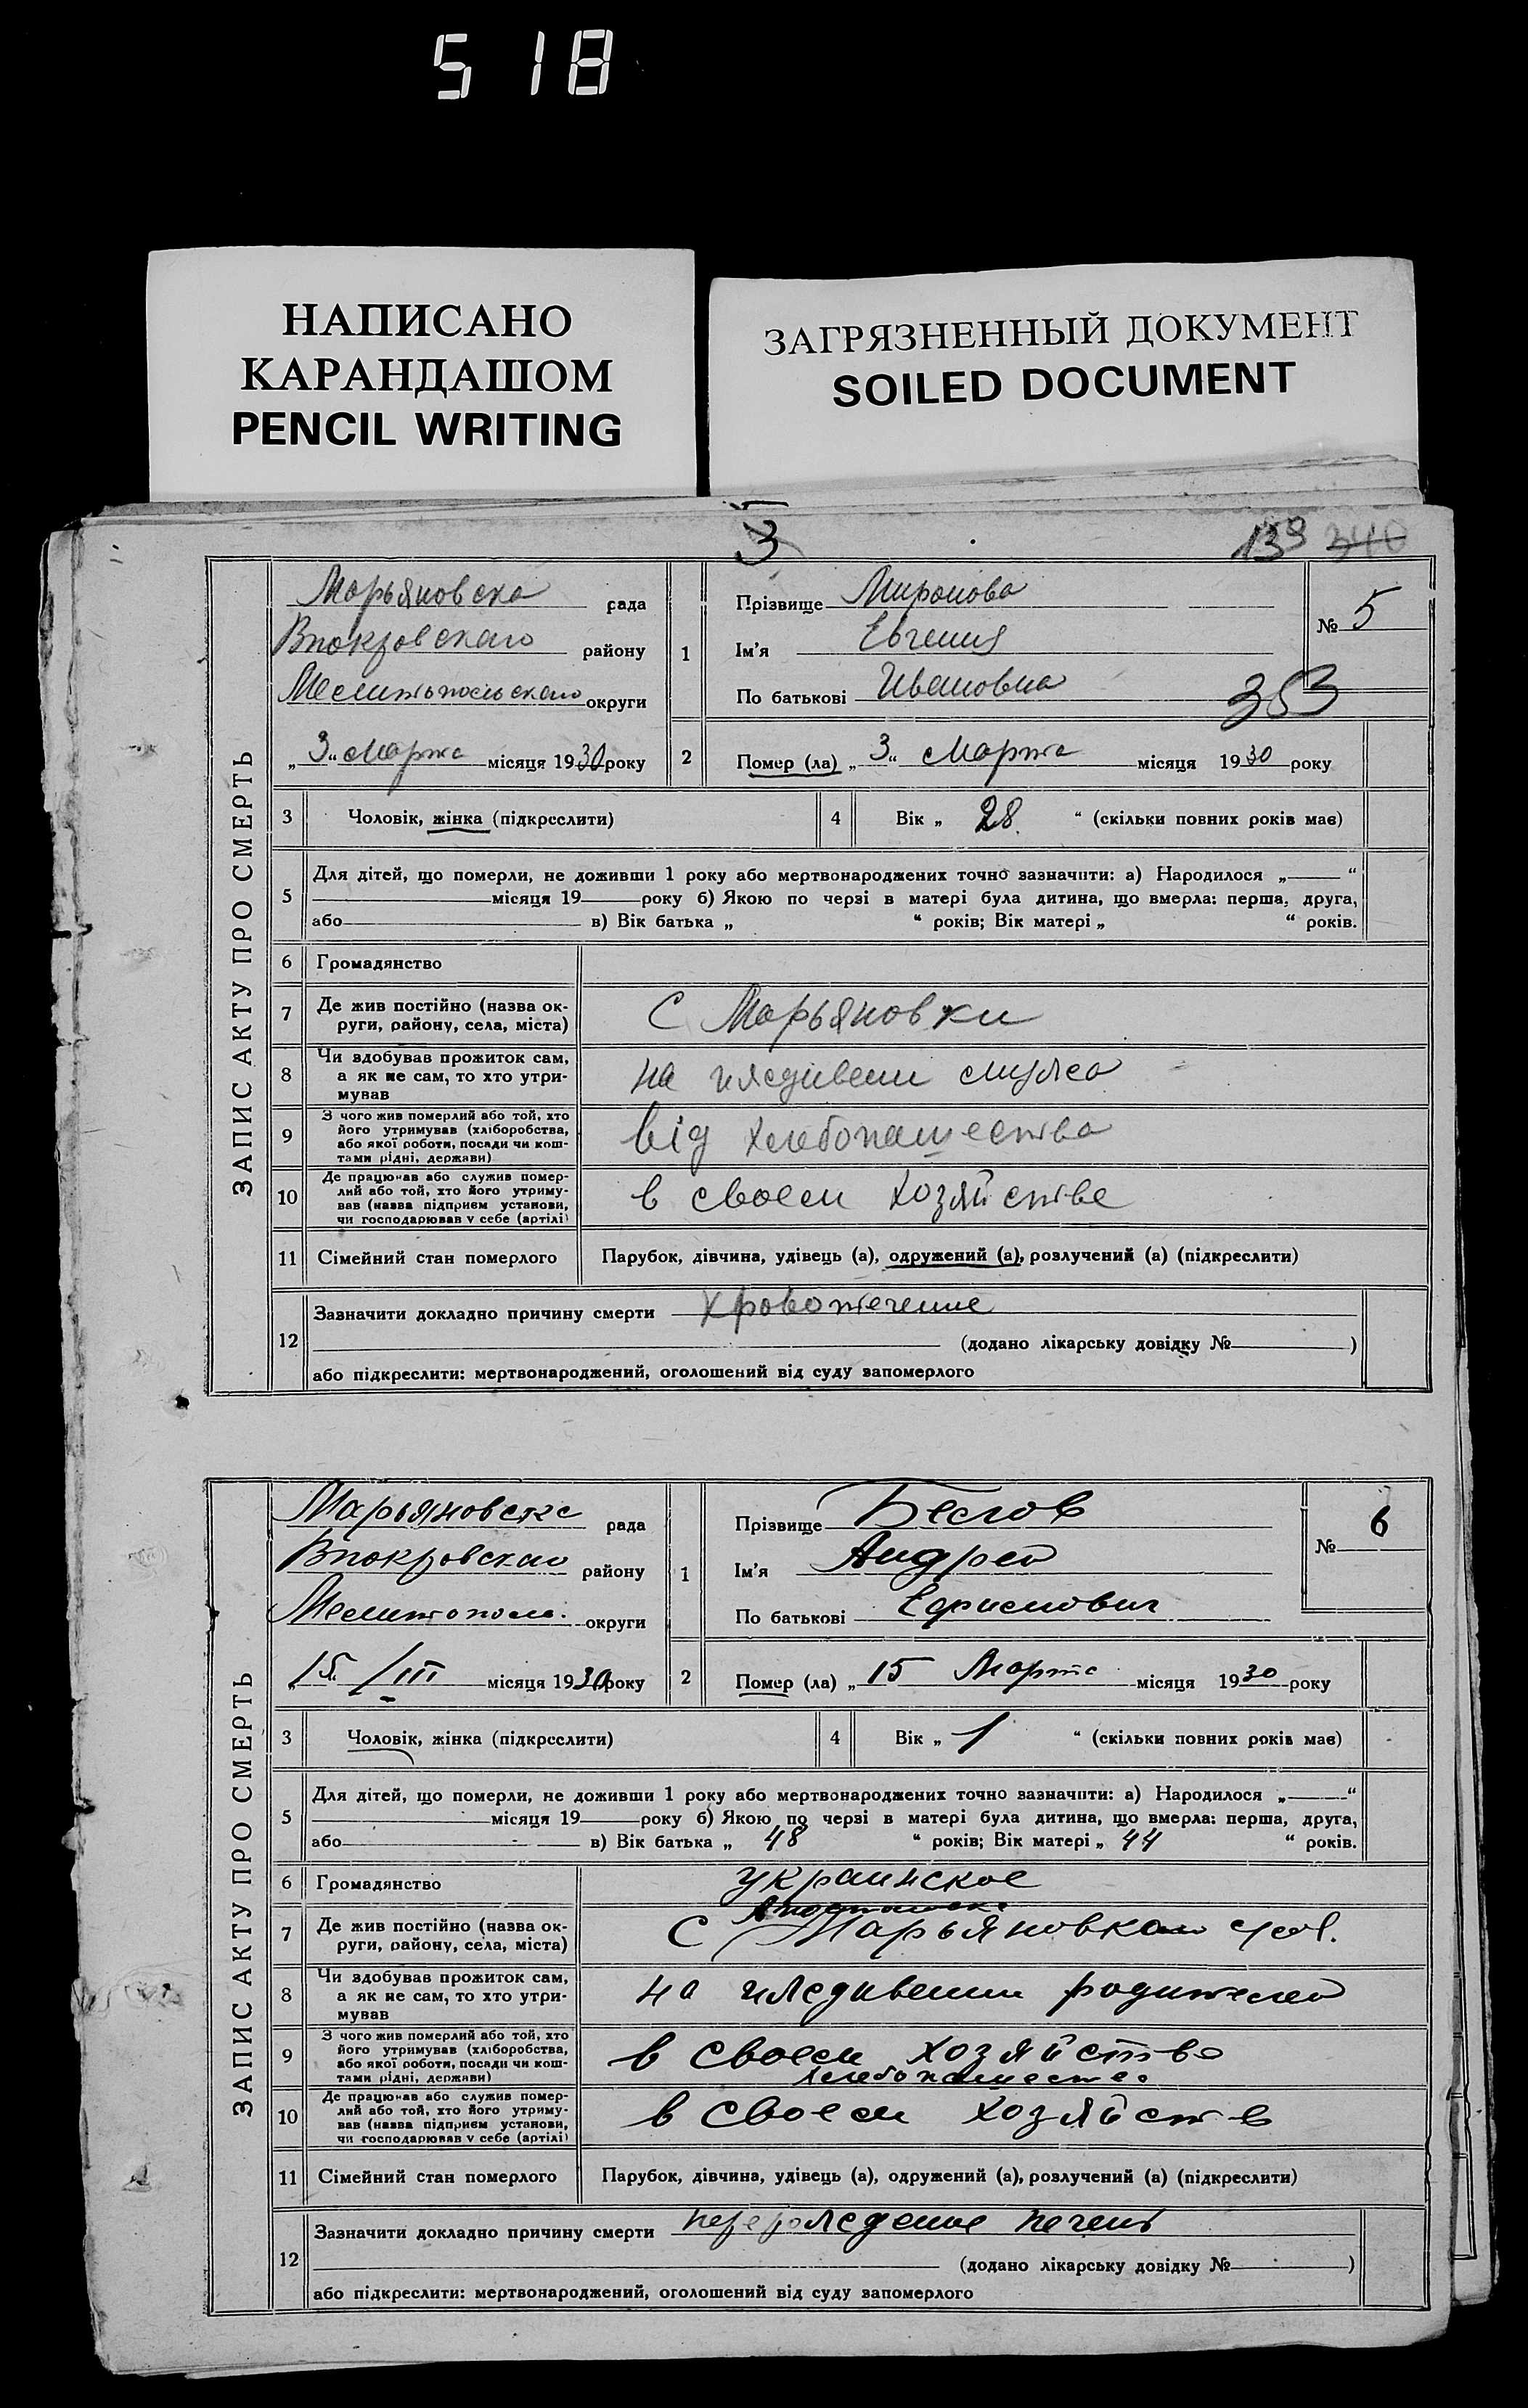 518
НАПИСАНО
КАРАНДАШОМ
PENCIL WRITING
ЗАГРЯЗНЕННЫЙ ДОКУМЕНТ
SOILED DOCUMENT
3
139 340
ЗАПИС АКТУ ПРО СМЕРТЬ
Марьяновска рада
Впокровскаго району
Мелитопольскаго округи
„3“ Марта місяця 1930 року
1 Прізвище Миронова
Ім'я Евгения
По батькові Ивановна
№ 5
353
2 Помер (ла) „3“ Марта місяця 1930 року
3 Чоловік, жінка (підкреслити)
4 Вік „28“ (скільки повних років має)
5 Для дітей, що померли, не доживши 1 року або мертвонароджених точно зазначити: а) Народилося „ “
місяця 19 року б) Якою по черзі в матері була дитина, що вмерла: перша, друга,
або в) Вік батька „ “ років; Вік матері „ “ років.
6 Громадянство
7 Де жив постійно (назва ок-
руги, району, села, міста)
С Марьяновки
8 Чи здобував прожиток сам,
а як не сам, то хто утри-
мував
на иждивении мужа
9 З чого жив померлий або той, хто
його утримував (хліборобства,
або якої роботи, посади чи кош-
тами рідні, держави)
від хлебопашества
10 Де працював або служив помер-
лий або той, хто його утриму-
вав (назва підприєм установи,
чи господарював у себе (артілі)
в своем хозяйстве
11 Сімейний стан померлого Парубок, дівчина, удівець (а), одружений (а), розлучений (а) (підкреслити)
12 Зазначити докладно причину смерти Кровотечение
(додано лікарську довідку № )
або підкреслити: мертвонароджений, оголошений від суду запомерлого
ЗАПИС АКТУ ПРО СМЕРТЬ
Марьяновска рада
Впокровскаго району
Мелитополь. округи
15/III місяця 1930 року
1 Прізвище Белов
Ім'я Андрей
По батькові
№ 6
2 Помер (ла) „15 Марта місяця 1930 року
3 Чоловік, жінка (підкреслити)
4 Вік „1“ (скільки повних років має)
5 Для дітей, що померли, не доживши 1 року або мертвонароджених точно зазначити: а) Народилося „ “
місяця 19 року б) Якою по черзі в матері була дитина, що вмерла: перша, друга,
або в) Вік батька „48“ років; Вік матері „44“ років.
6 Громадянство украинское
7 Де жив постійно (назва ок-
руги, району, села, міста)
С Марьяновка
8 Чи здобував прожиток сам,
а як не сам, то хто утри-
мував
на иждивении родителей
9 З чого жив померлий або той, хто
його утримував (хліборобства,
або якої роботи, посади чи кош-
тами рідні, держави)
в своем хозяйстве
хлебопашество
10 Де працював або служив помер-
лий або той, хто його утриму-
вав (назва підприєм установи,
чи господарював у себе (артілі)
в своем хозяйств
11 Сімейний стан померлого Парубок, дівчина, удівець (а), одружений (а), розлучений (а) (підкреслити)
12 Зазначити докладно причину смерти перерождение печени
(додано лікарську довідку № )
або підкреслити: мертвонароджений, оголошений від суду запомерлого